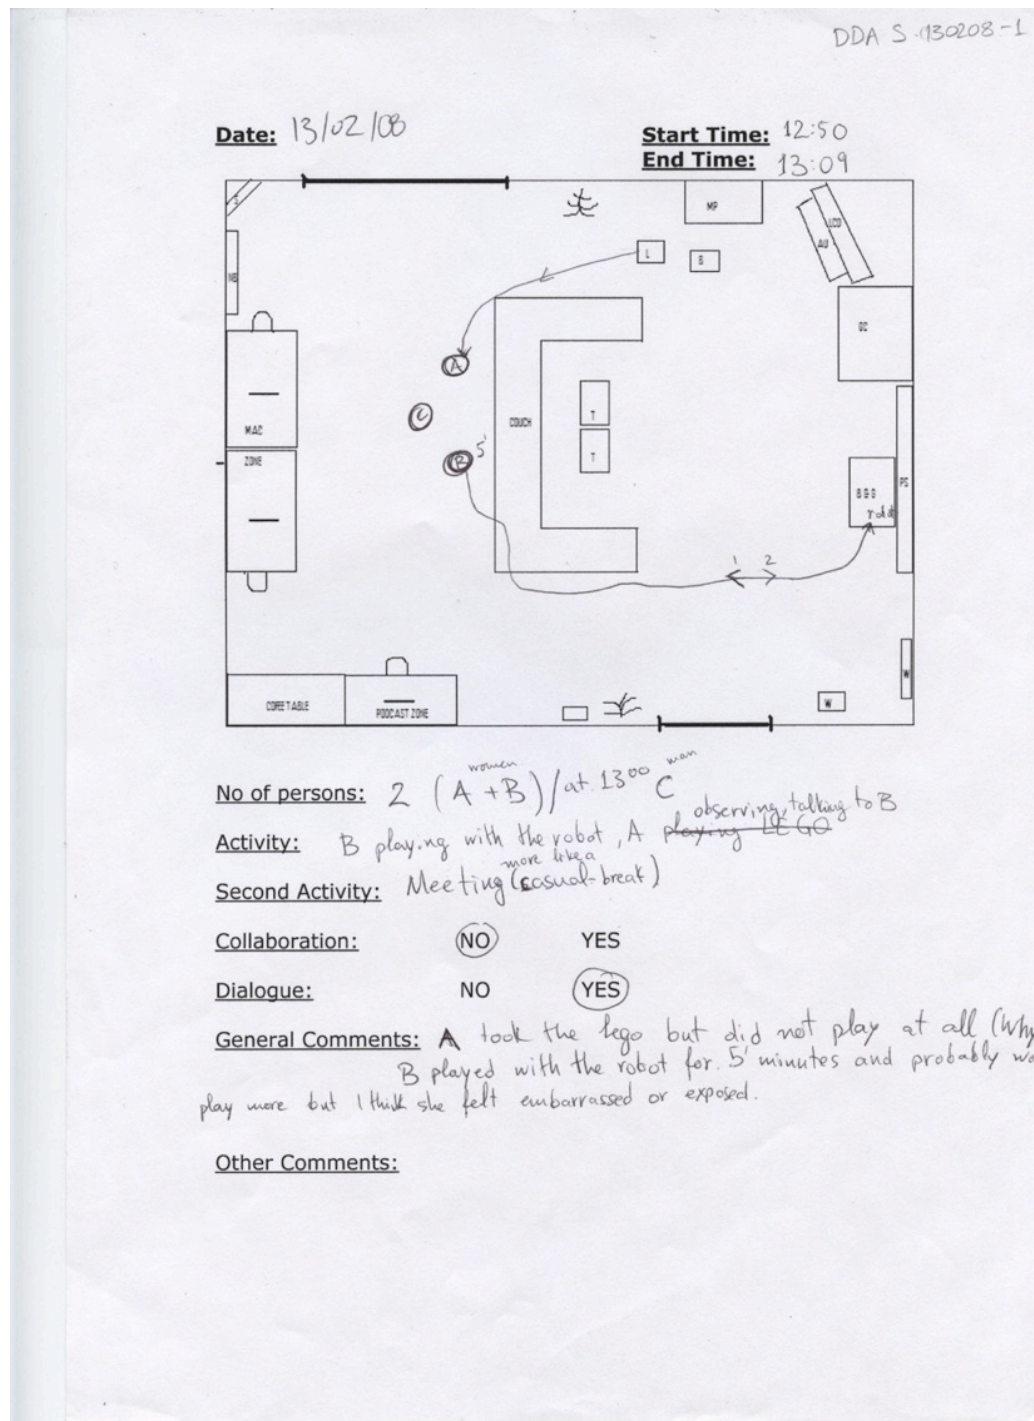 DDA S 130208-1
Date: 13/02/08 Start Time: 12:50
End Time: 13:09
MP
LCD
AU
NB
L
S
GC
A
C
COUCH
T
MAC
B 5'
ZONE
T
PS
robot
1 2
W
W
COFEE TABLE
PODCAST ZONE
women man
No of persons: 2 (A+B)/at 1300 C
observing, talking to B
Activity: B playing with the robot, A playing LEGO
more like a
Second Activity: Meeting (casual-break)
Collaboration: NO YES
Dialogue: NO YES
General Comments: A took the lego but did not play at all (Why
B played with the robot for 5' minutes and probably wo
play more but I think she felt embarrassed or exposed.
Other Comments: